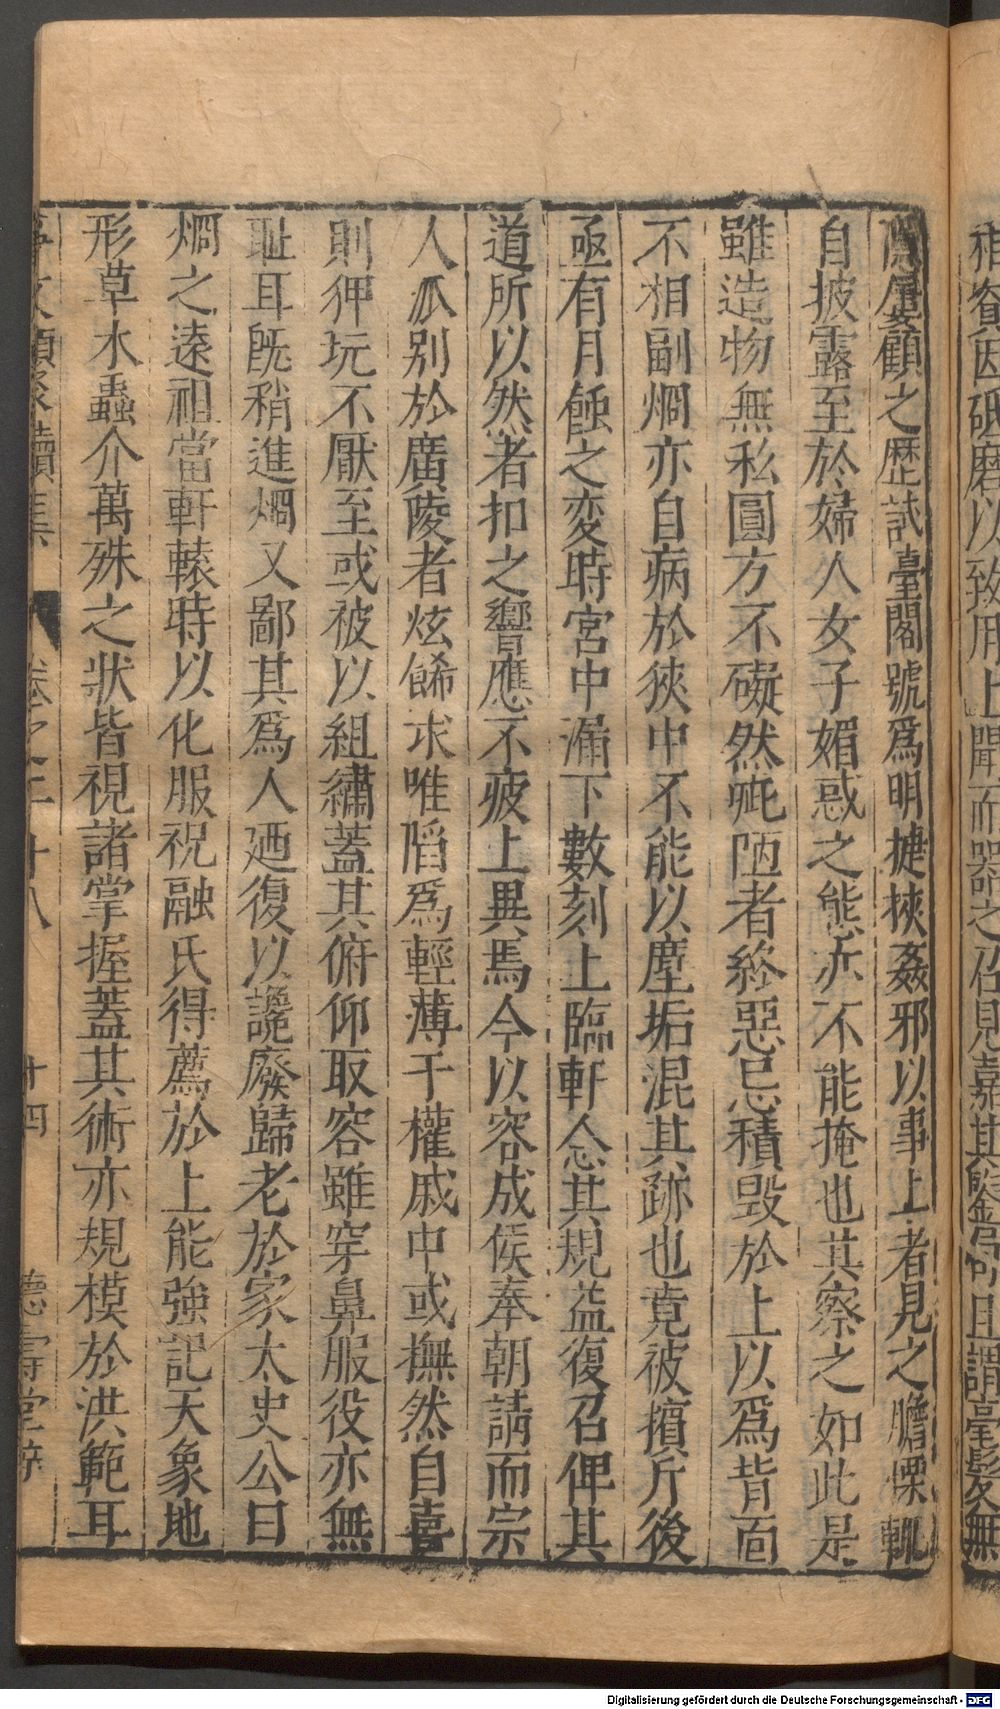 相資因砥磨以致用上聞而器之召見嘉其鑒局且謂毫髮無
隱屢顧之歷試臺閣號為明揵挾姦邪以事上者見之膽慄輒
自披露至於婦人女子媚惑之態亦不能掩也其察之如此是
雖造物無私圓方不礙然疵陋者終惡忌積毀於上以為背面
不相副烱亦自病於狹中不能以塵垢混其跡也竟被擯斥後
亟有月蝕之変時宮中漏下數刻上臨軒念其規益復召俾其
道所以然者扣之響應不疲上異焉今以容成侯奉朝請而宗
人派別於廣陵者炫餙求唯陷為輕薄干權戚中或撫然自喜
則狎玩不厭至或被以組繡蓋其俯仰取容雖穿鼻服役亦無
耻耳旣稍進烱又鄙其為人廼復以讒廢歸老於家太史公曰
烱之遠祖當軒轅時以化服祝融氏得薦於上能強記天象地
形草木蟲介萬殊之狀皆視諸掌握蓋其術亦規模於洪範耳
事文類聚續集 卷之二十八 十四 德壽堂梓
Digitalisierung gefördert durch die Deutsche Forschungsgemeinschaft - DFG